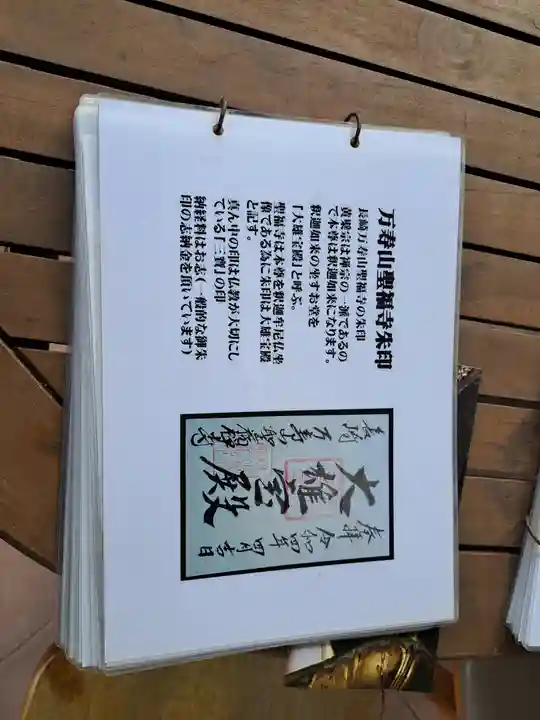 万寿山聖福寺朱印
長崎万寿山聖福寺の朱印
黄檗宗は禅宗の一派であるの
で本尊は釈迦如来になります。
釈迦如来の坐すお堂を
「大雄宝殿」と呼ぶ。
聖福寺は本尊を釈迦牟尼仏坐
像である為に朱印は大雄宝殿
と記す。
真ん中の印は仏教が大切にし
ている「三寶」の印
納経料はお志（一般的な御朱
印の志納金を頂いています）
奉拝 令和四年 四月吉日
大雄宝殿
長崎 万寿山聖福寺